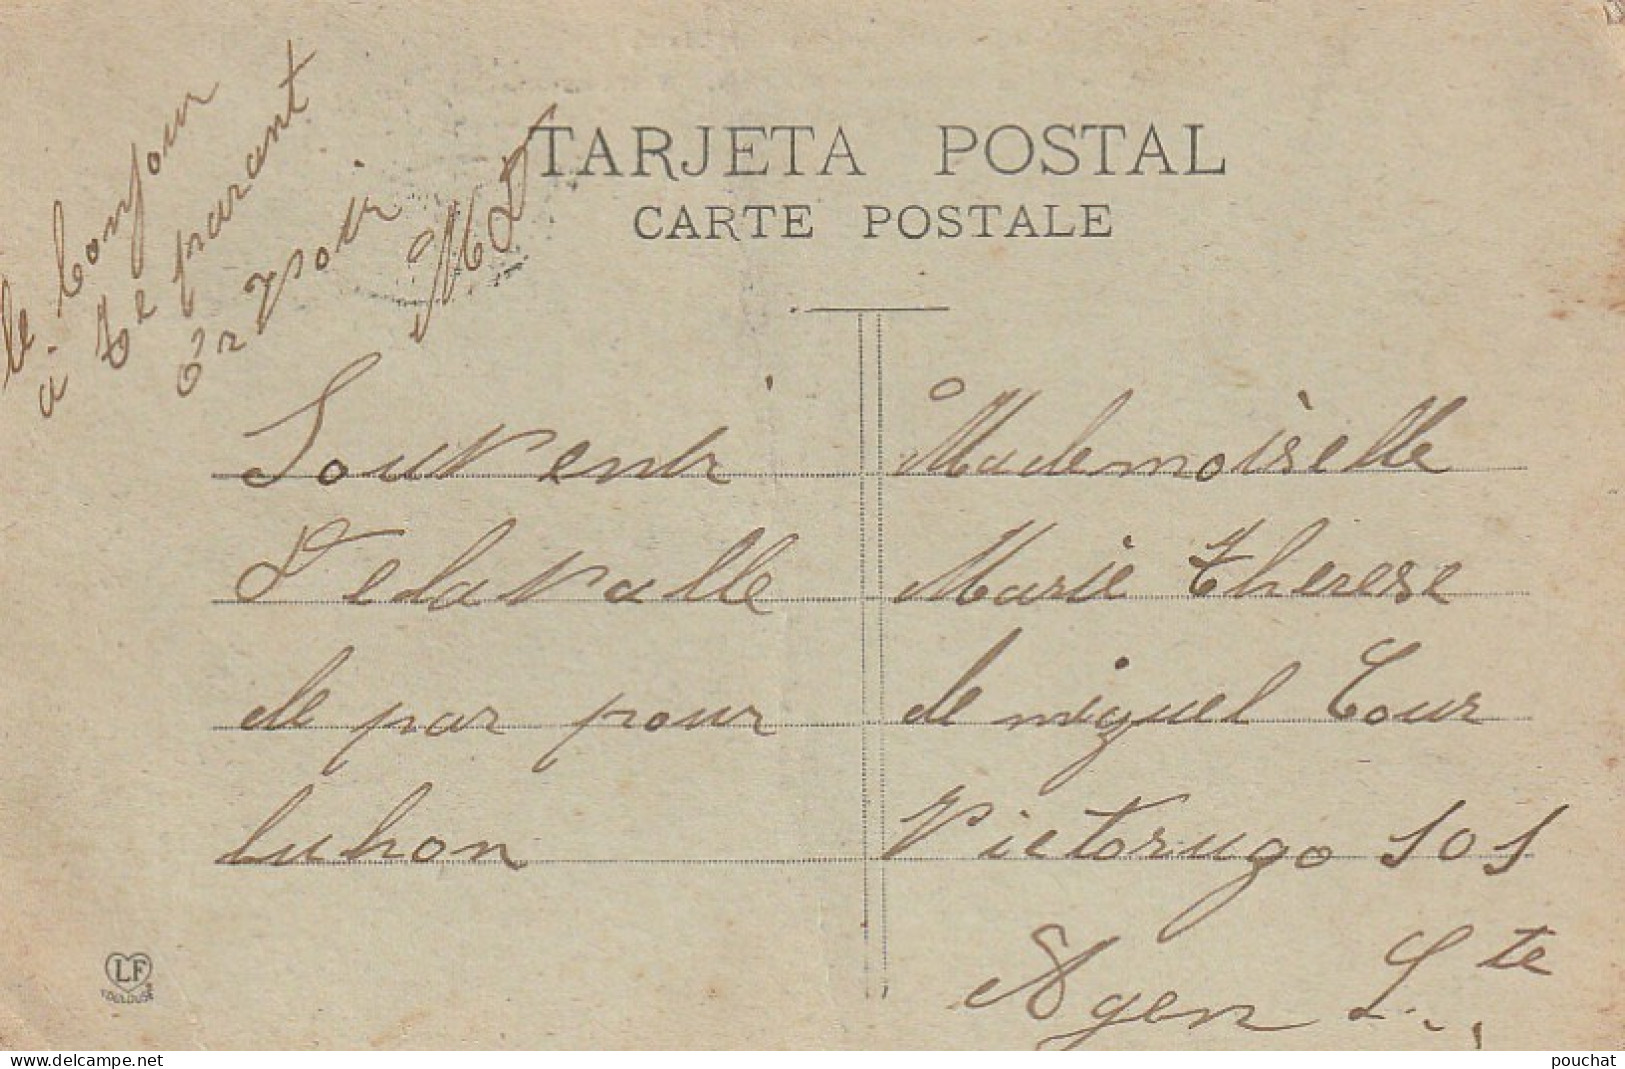 TARJETA POSTAL
CARTE POSTALE
le bonjour
à te parant
MD
Souvenir
Delavalle
de par pour
luhon
Mademoiselle
Marie therese
de miguel Cour
Victorugo 101
Agen L.te
LF
TOULOUSE
www.delcampe.net
pouchat